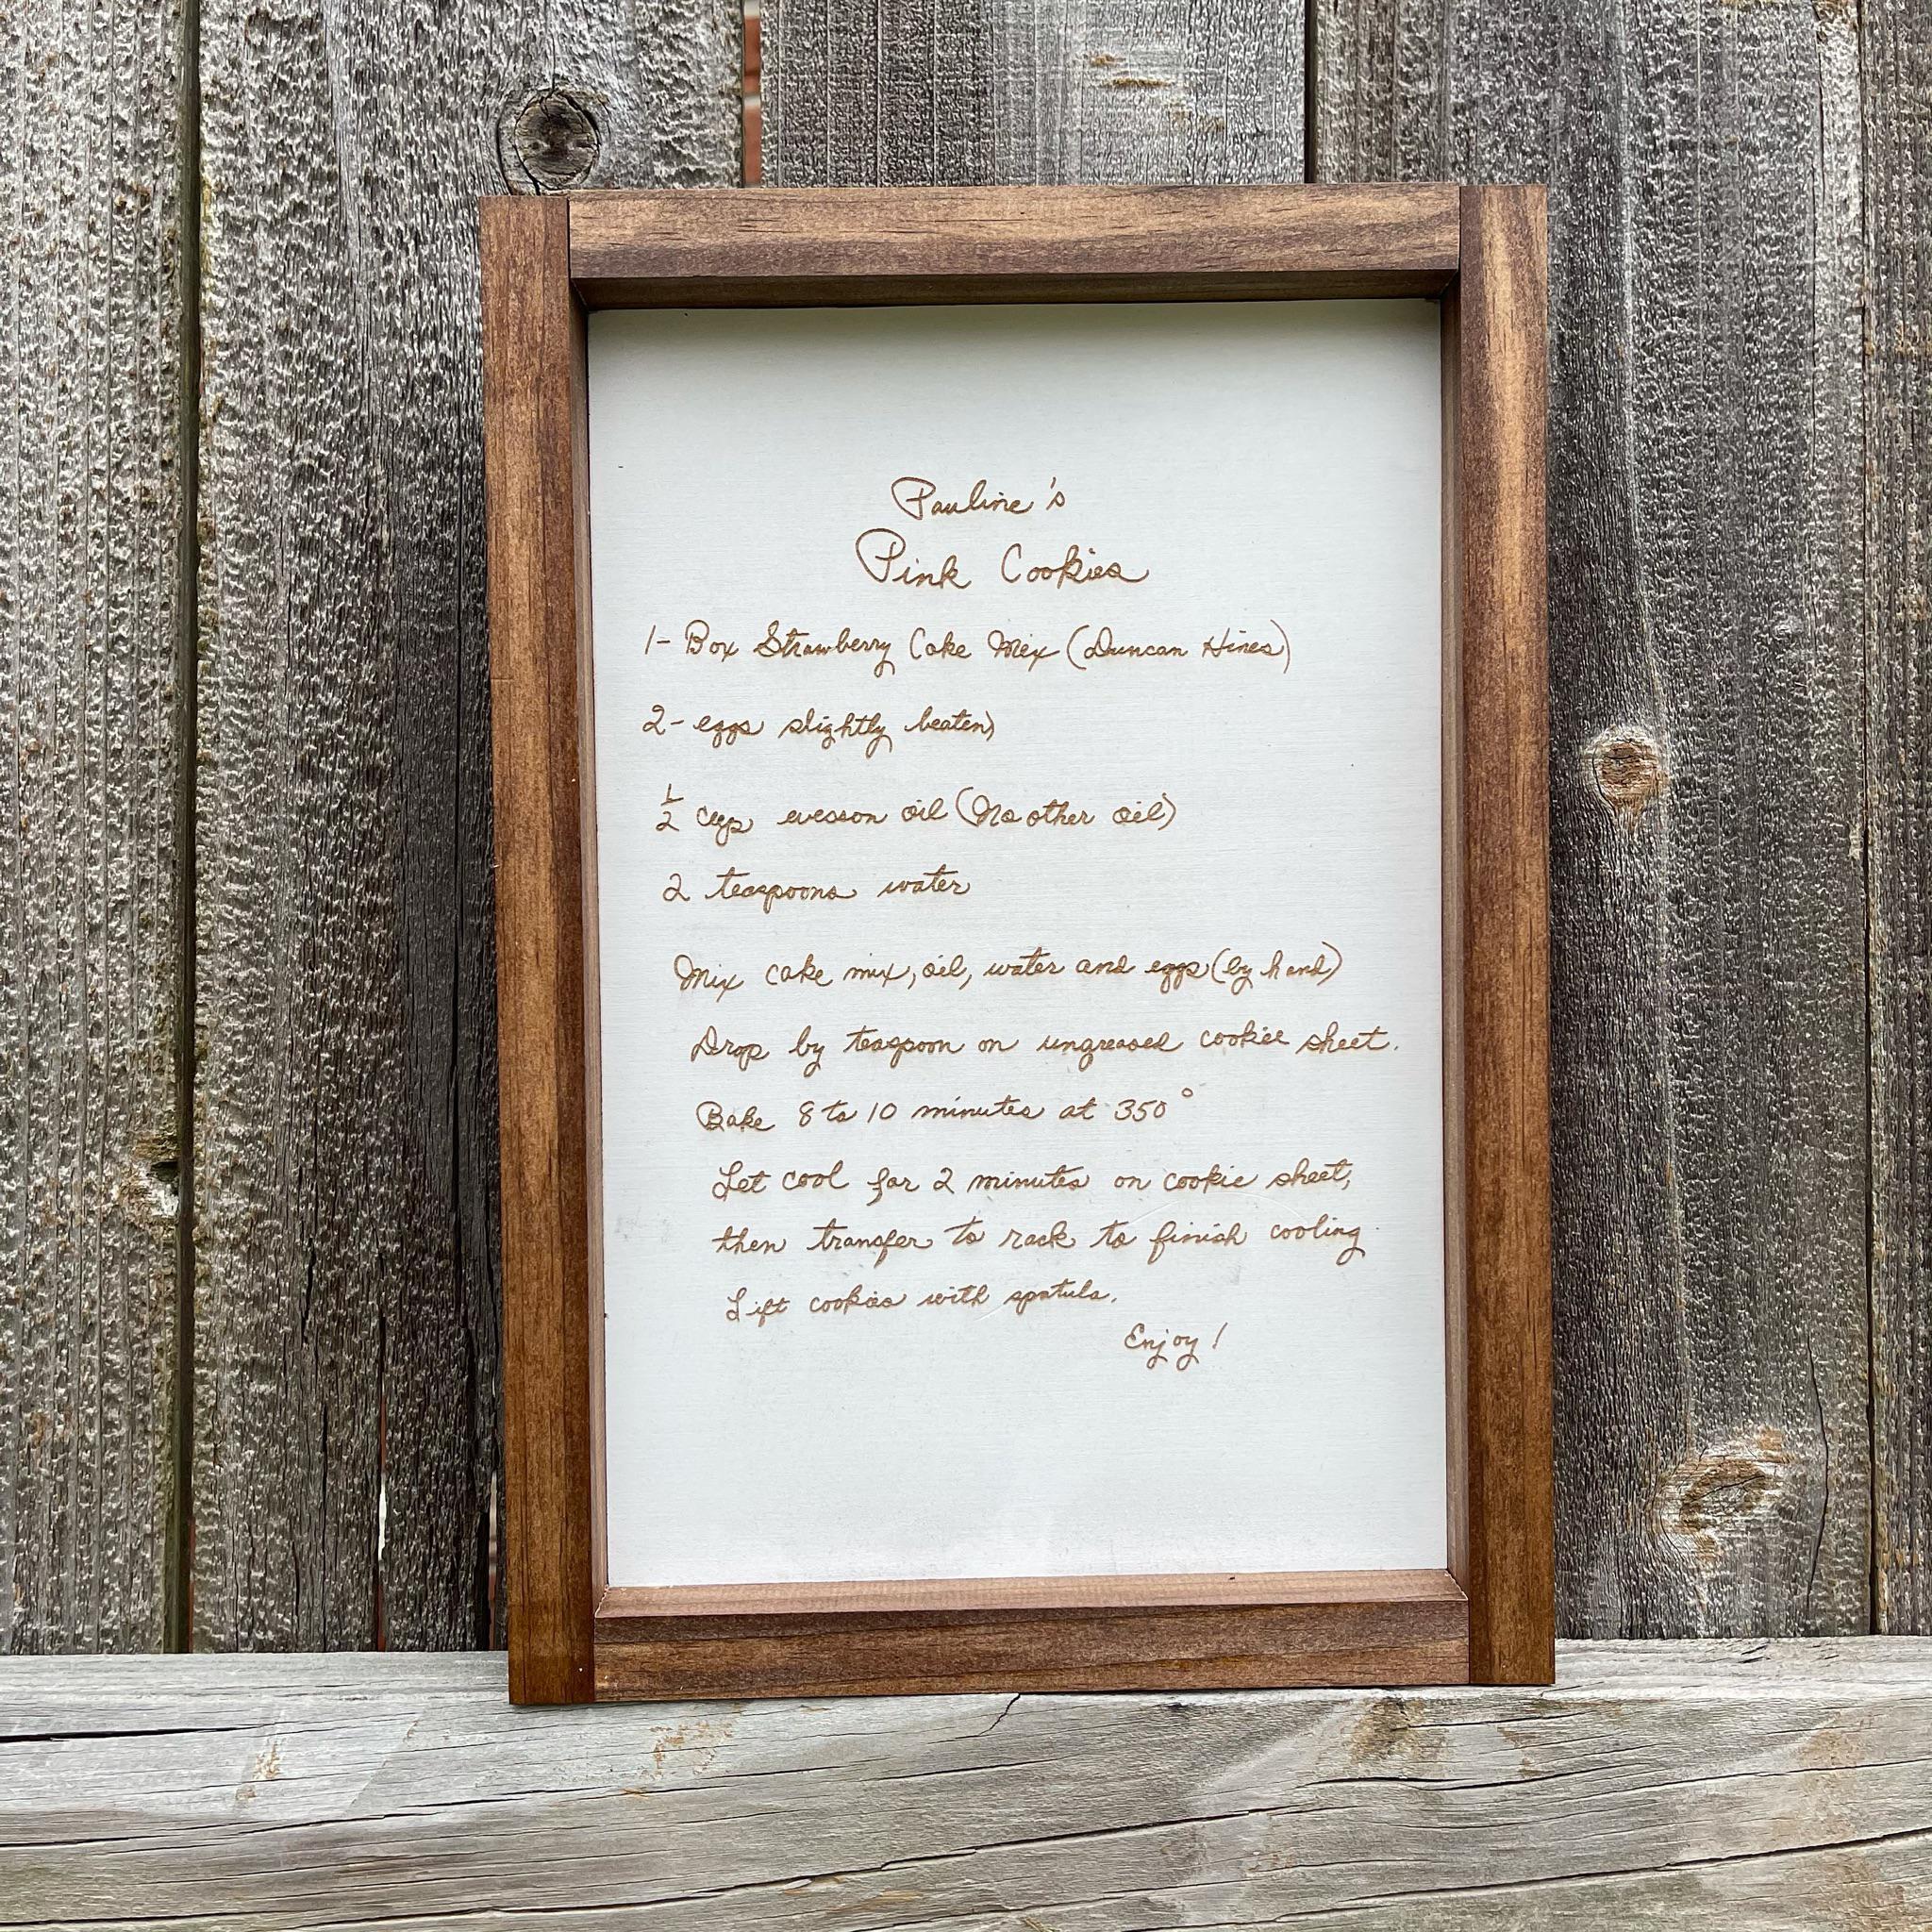 Pauline's
Pink Cookies
1- Box Strawberry Cake Mix (Duncan Hines)
2- eggs slightly beaten
1/2 cup wesson oil (No other oil)
2 teaspoons water
Mix cake mix, oil, water and eggs (by hand)
Drop by teaspoon on ungreased cookie sheet.
Bake 8 to 10 minutes at 350°
Let cool for 2 minutes on cookie sheet,
then transfer to rack to finish cooling.
Lift cookies with spatula.
Enjoy!